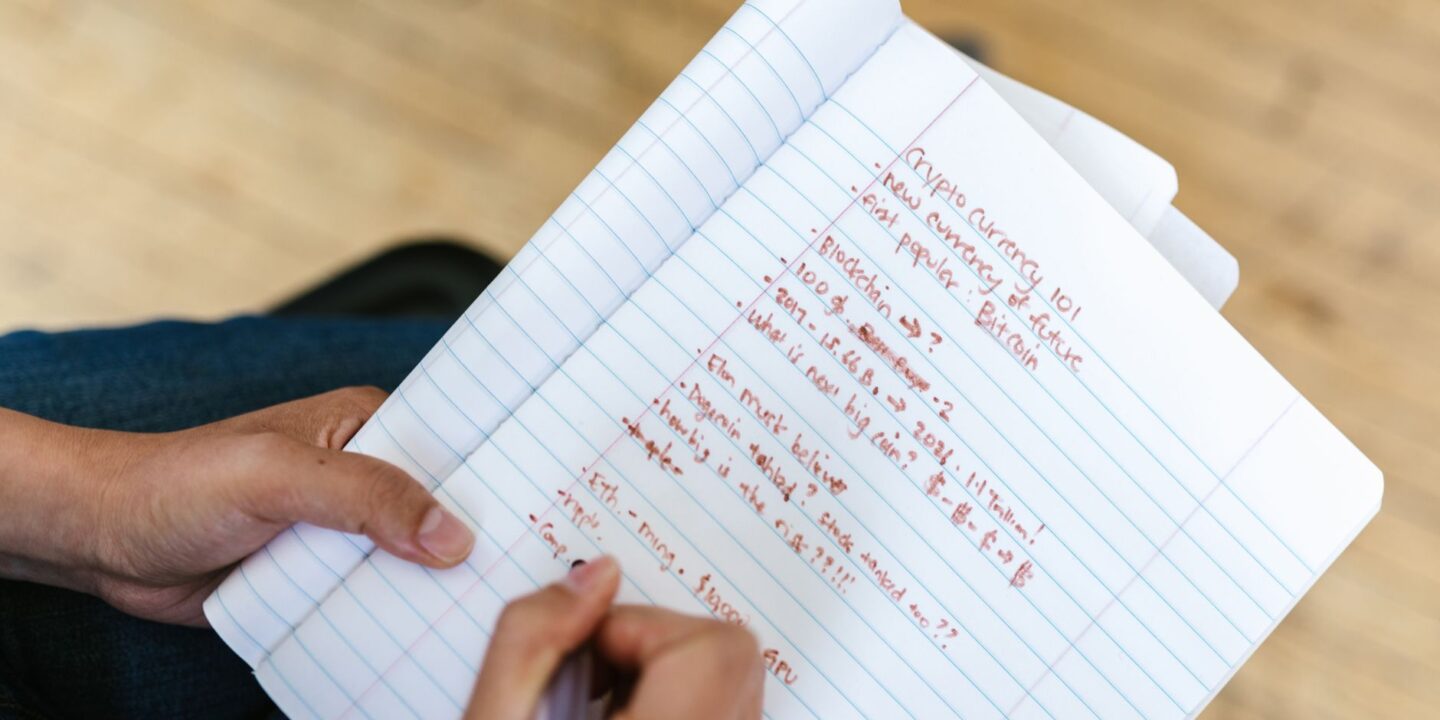 Crypto Currency 101
- new currency of future
- first popular : Bitcoin
- Blockchain → ?
- 100 -2
- 2017 - 15.66 B. → 2021. 1.1 Trillion!
- What is next big coin? $-$-$→$
- Elon musk believe
- Dogecoin tanked? Stock tanked too??
- how big is the risk???!!!
- Eth. - ming. GPU
- ripple.
- Comp